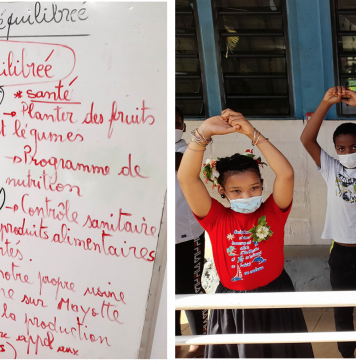 équilibreé
ilibreé
* santé
→ Planter des fruits
et légumes
→ Programme de
nutrition
→ Contrôle sanitaire
produits alimentaires
tés.
notre propre usine
sur Mayotte
la production
appel aux